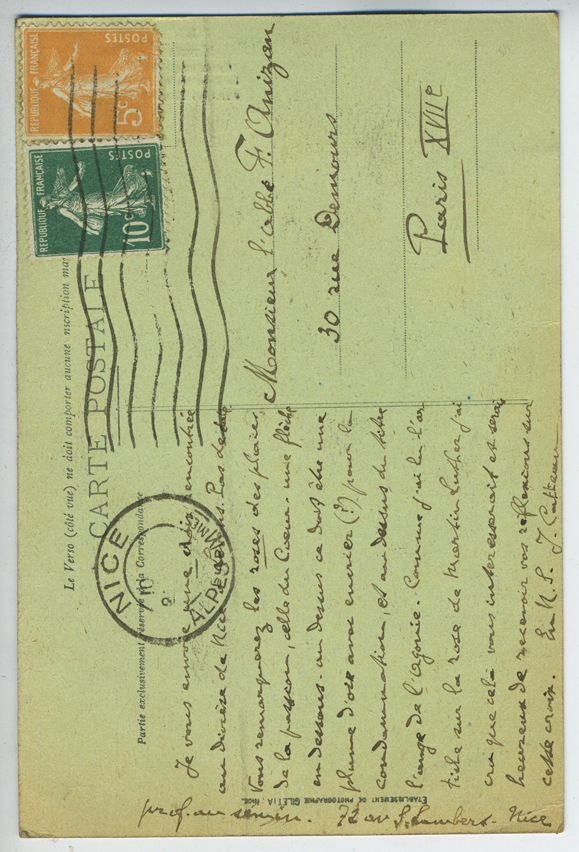 RÉPUBLIQUE FRANÇAISE
POSTES
5c
RÉPUBLIQUE FRANÇAISE
POSTES
10c
Le Verso (côté vue) ne doit comporter aucune nscription ma
CARTE POSTALE
Partie exclusivement réservée à la Correspondance
NICE
ALPES MMES
Monsieur l'abbé F. Anizan
30 rue Demours
Paris XVIIe
Je vous envoie une croix rencontrée
au diocèse de Nice Pas de date
Vous remarquerez les roses des plaies
de la passion, celle du Coeur. une flèche
en dessous. au dessus ce doit être une
plume d'oie avec encrier (?) pour la
condamnation, et au dessus du titre
l'ange de l'agonie. Comme j'ai lu l'ar
ticle sur la rose de Martin Luther j'ai
cru que cela vous intéresserait et serais
heureux de recevoir vos réflexions sur
cette croix. En N. S. J.
prof. au 72 av S. Lambert. Nice
ETABLISSEMENT DE PHOTOGRAPHIE GILETTA NICE.